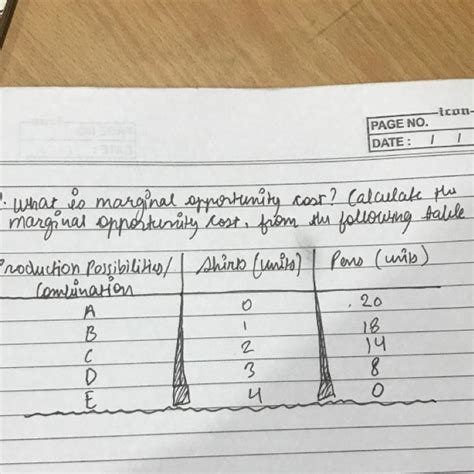 icon
PAGE NO.
DATE : / /
What is marginal opportunity cost? Calculate the
marginal opportunity cost, from the following table
Production Possibilities/ Shirts (units) Pens (units)
Combination
A 0 20
B 1 18
C 2 14
D 3 8
E 4 0